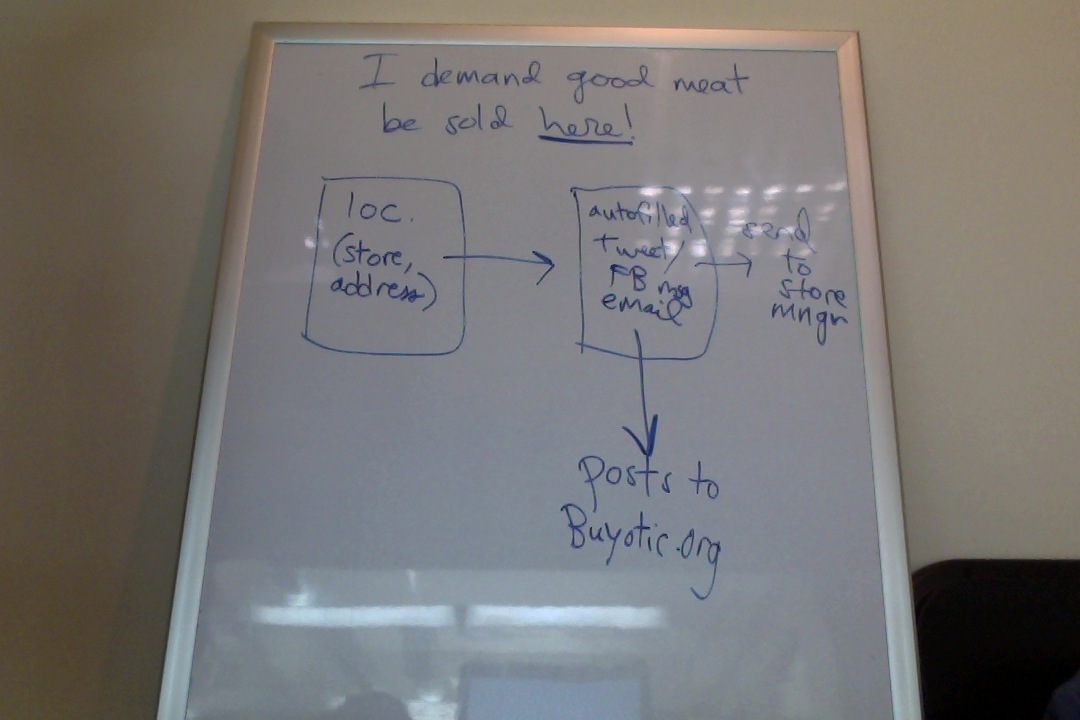 I demand good meat
be sold here!
loc.
(store,
address)
autofilled
tweet/
FB msg
email
send
to
store
mngr
posts to
Buyotic.org